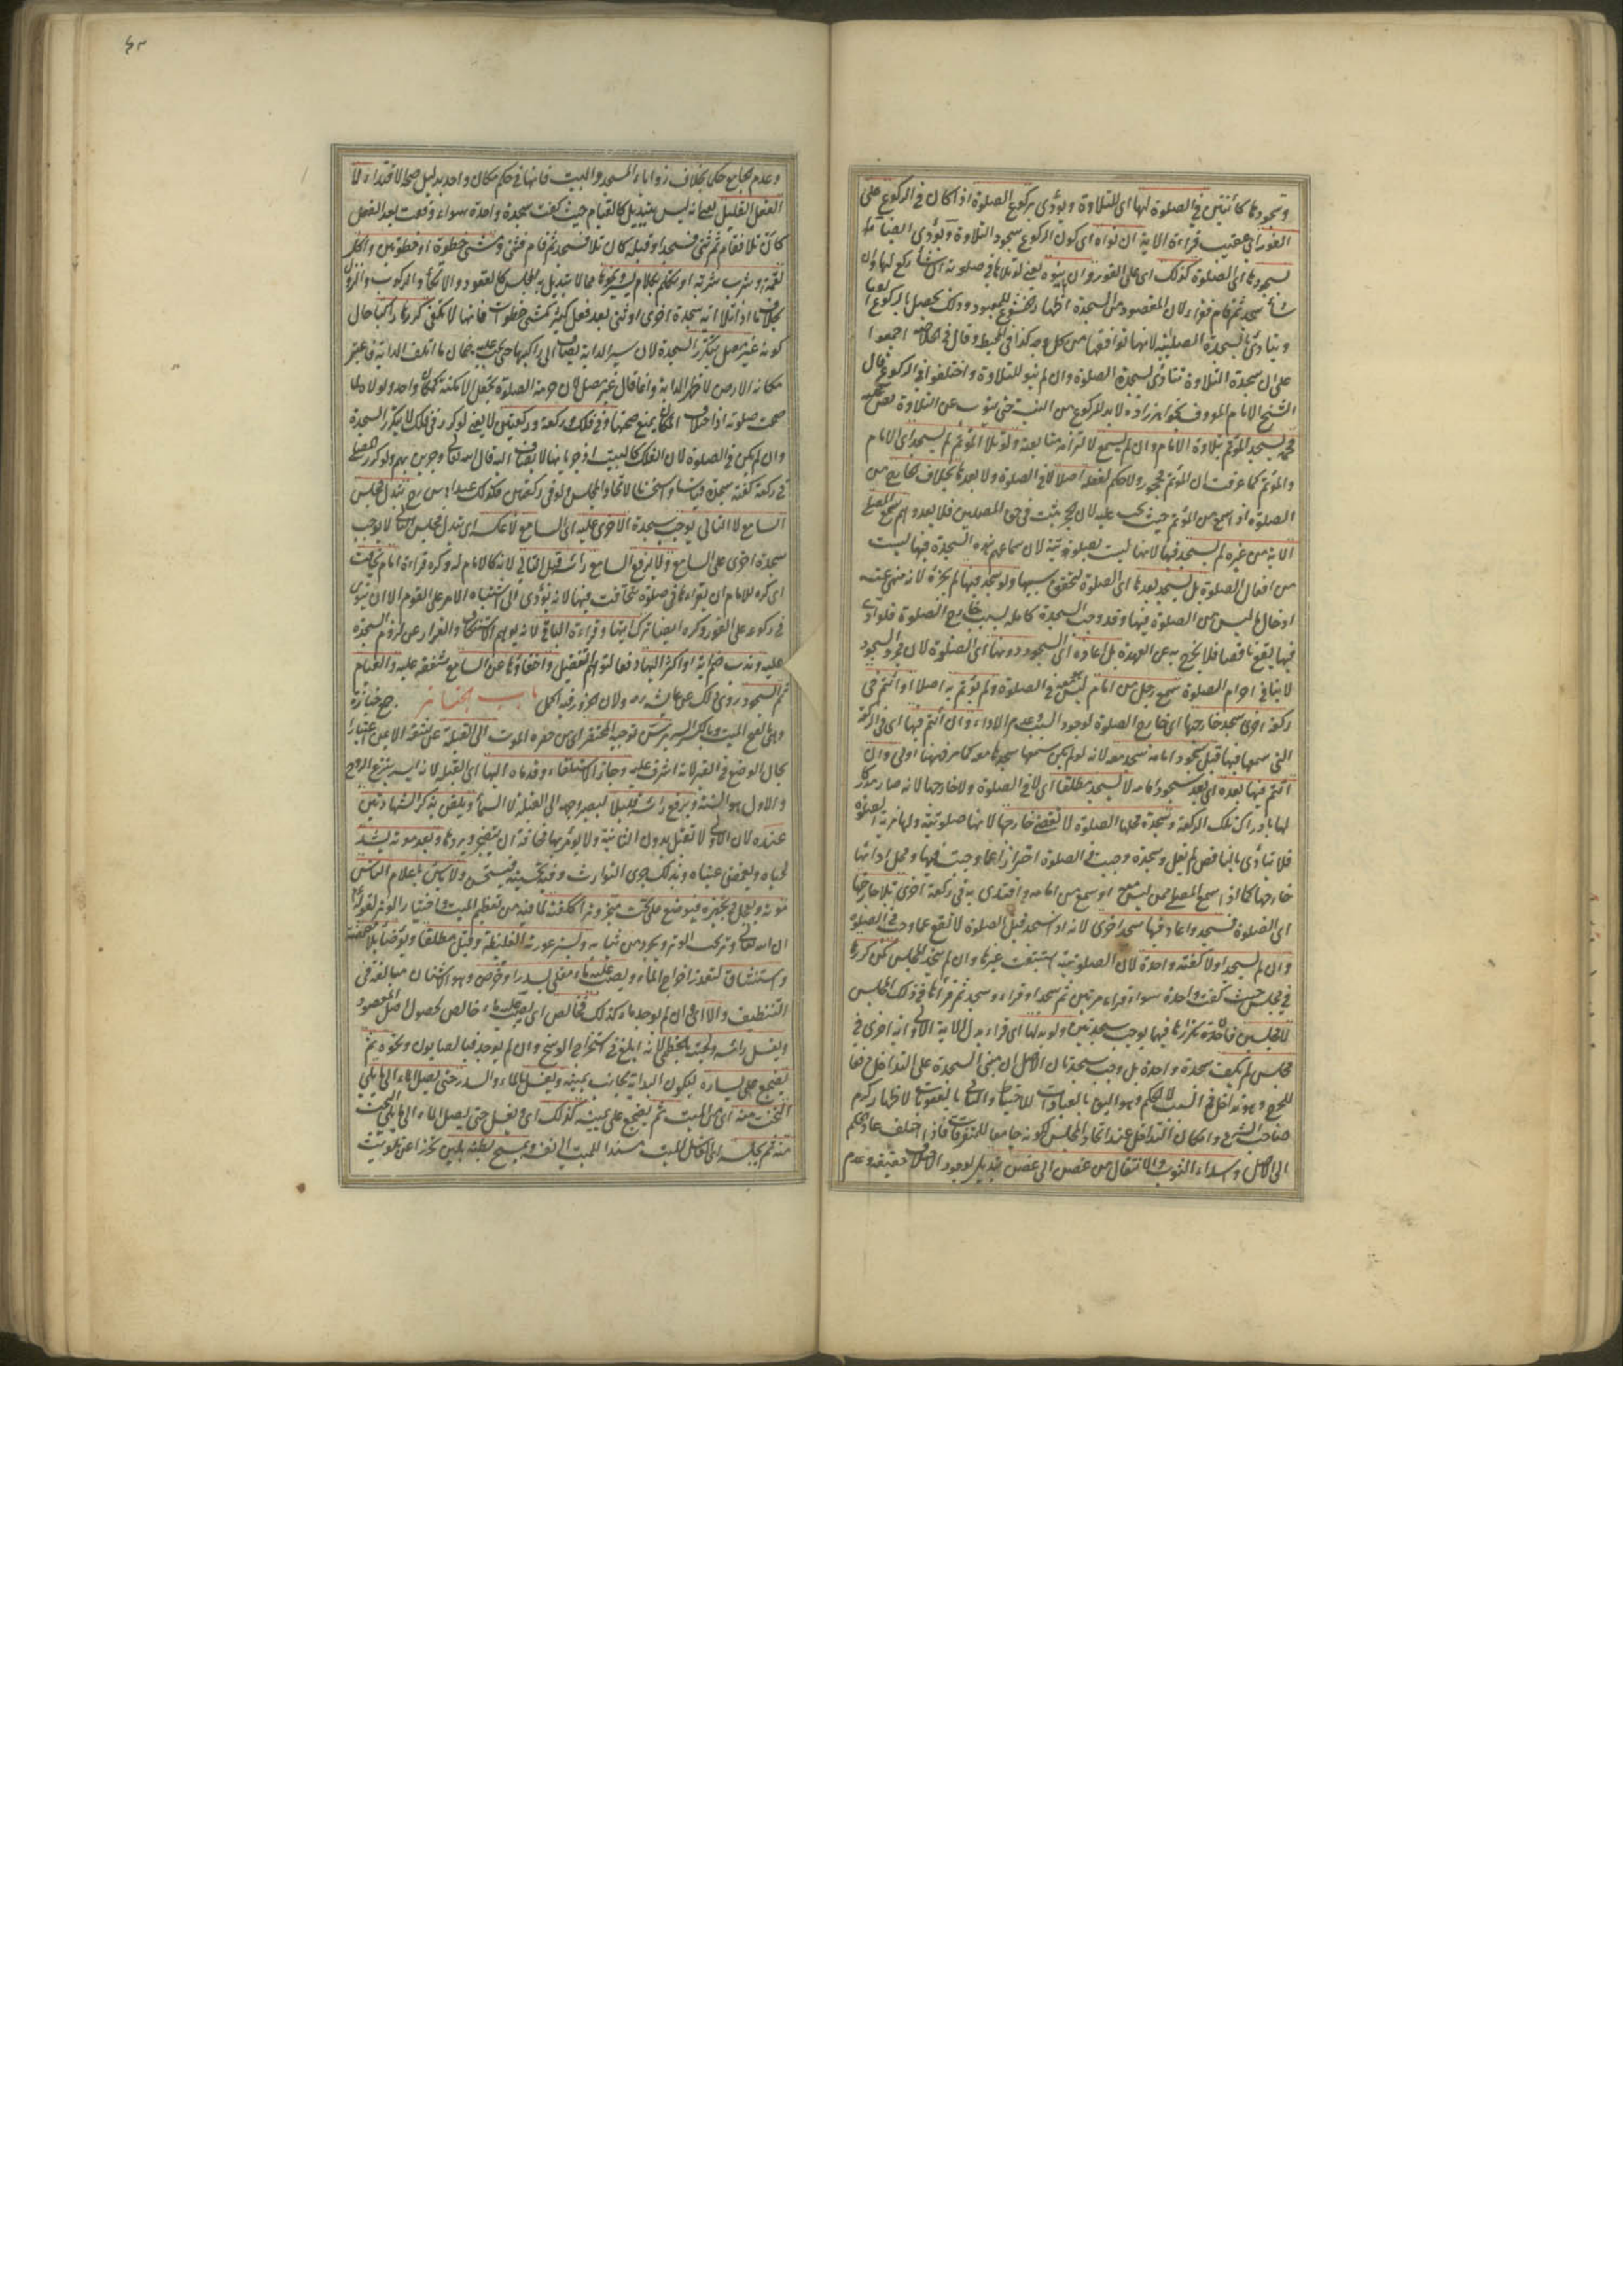 وسجودها كائنين في الصلوة لها اى للتلاوة ويؤدى بركوع الصلوة اذا كان في الركوع على
الفور اى عقيب قراءة الاية ان نواه اى كون الركوع سجود التلاوة ويؤدى ايضا
بسجودها اى الصلوة كذلك اى على الفور وان لم ينوه يعنى لو تلاها في صلوته ان شاء ركع لها وان
شاء سجد ثم قام فقراء لان المقصود من السجدة اظهار الخشوع للمعبود وذلك يحصل بالركوع
ويتادى بالسجدة الصلبية لانها توافقها من كل وجه كذا في المحيط وقال في الخلاصة اجمعوا
على ان سجدة التلاوة تتادى بسجدة الصلوة وان لم ينو للتلاوة واختلفوا في الركوع قال
الشيخ الامام المعروف بخواهرزاده لابد للركوع من النية حتى ينوب عن التلاوة نص عليه
محمد يسجد المؤتم بتلاوة الامام وان لم يسمع لالتزامه متابعته ولو تلا المؤتم لم يسجد اى الامام
والمؤتم كما عرفت ان المؤتم محجور ولا حكم لفعله اصلا لا في الصلوة ولا بعدها بخلاف خارج من
الصلوة اذ اسمع من المؤتم حيث يجب عليه لان الحجر ثبت في حق المصلين فلا يعدوهم سمع المصلى
الاية من غيره لم يسجد فيها لانها ليست بصلوتية لان سماعهم هذه السجدة فيها ليست
من افعال الصلوة بل يسجد بعدها اى الصلوة لتحقق سببها ولو سجد فيها لم يجزه لانه منهى عنه
ادخال ما ليس من الصلوة فيها وقد وجب السجدة كاملة بسبب خارج الصلوة فلو ادى
فيها يقع ناقصا فلا يخرج به عن العهدة بل اعاده اى السجود دونها اى الصلوة لان مجرد السجود
لا ينافي احرام الصلوة سمع رجل من امام ليس في الصلوة ولم يؤتم به اصلا او ائتم في
ركعة اخرى سجد خارجها اى خارج الصلوة لوجود السبب وعدم الاداء وان ائتم فيها اى في الركعة
التى سمعها فيها قبل سجود امامه سجد معه لانه لو لم يكن سمعها سجدها معه كما مر فههنا اولى وان
ائتم فيها بعده اى بعد سجود امامه لا يسجد مطلقا اى لا في الصلوة ولا خارجها لانه صار مدركا
لها بادراك تلك الركعة وسجدة محلها الصلوة لا تقضى خارجها لانها صلوتية ولها مزية الصلوة
فلا تتأدى بالناقص لم يقل وسجدة وجبت في الصلوة احترازا عما وجبت فيها ومحل ادائها
خارجها كما اذا سمع المصلى ممن ليس معه او سمع من امامه واقتدى به في ركعة اخرى تلاها خارج
اى الصلوة فسجد واعاد فيها سجد اخرى لانه اذ سجد قبل الصلوة لا تقع عما وجبت في الصلوة
وان لم يسجد اولا كفته واحدة لان الصلوتية استتبعت غيرها وان لم يتحد المجلس كمن كررها
في مجلس حيث كفت واحدة سواء قراء مرتين ثم سجد او قراء وسجد ثم قرأها في ذلك المجلس
للمجلس فاتحدة بتكرارها فيها يوجب سجدتين ولو بدلها اى قراء بدل الاية الاولى اية اخرى في
مجلس لم تكف سجدة واحدة بل وجب سجدتان الاصل ان مبنى السجدة على التداخل دفعا
للحرج وهو تداخل في السبب لا الحكم وهو اليق بالعبادات للاحتياط والثانى بالعقوبات لاظهار كرم
صاحب الشرع وامكان التداخل عند اتحاد المجلس لكونه جامعا للمتفرقات فاذا اختلف عاد الحكم
الى الاصل واسداء الثوب والانتقال من غصن الى غصن تبديل لوجود الاختلاف حقيقة وعدم
وعدم الجامع حكما بخلاف زوايا المسجد والبيت فانها في حكم مكان واحد بدليل صحة الاقتداء لا
الفعل القليل يعنى انه ليس بتبديل كالقيام حيث كفت سجدة واحدة سواء وقعت بعد الفعل
كان تلا فقام ثم ثنى فسجد او قبله كان تلا فسجد ثم قام فثنى ومشى خطوة او خطوتين واكل
لقمة وشرب شربة او تكلم بكلام يسير ونحوها مما لا يتبدل به المجلس كالقعود والاتكاء والركوب والنزول
بخلاف ما اذا تلا اية سجدة اخرى او ثنى بعد فعل كثير كمشى خطوات فانها لا تكفى كررها راكبا حال
كونه غير مصل يتكرر السجدة لان سير الدابة يضاف الى راكبها حتى يجب عليه ضمان ما اتلف الدابة فاعتبر
مكانه الارض لا ظهر الدابة وانما قال غير مصل لان حرمة الصلوة تجعل الامكنة كمكان واحد ولولاه لما
صحت صلوته اذ اختلاف المكان يمنع صحتها وفي فلك وركعة وركعتين لا يعنى لو كرر في فلك لا يتكرر السجدة
وان لم يكن في الصلوة لان الفلك كالبيت اذ جريانها لا يضاف اليه قال الله تعالى وجرين بهم ولو كررها المصلى
في ركعة كفته سجدة قياسا واستحسانا لاتحاد المجلس ولو في ركعتين فكذلك عند ابى يوسف رح تبدل مجلس
السامع لا التالى يوجب سجدة الاخرى عليه اى السامع لا عكسه اى تبدل مجلس التالى لا يوجب
سجدة اخرى على السامع ولا يرفع السامع راسه قبل التالى لانه كالامام له وكره قراءة امام يخافت
اى كره للامام ان يقراءها في صلوة تخافت فيها لانه يؤدى الى اشتباه الامر على القوم الا ان ينوى
في ركوعه على الفور وكره ايضا ترك ايتها وقراءة الباقى لانه يوهم الاستنكاف والفرار عن لزوم السجدة
عليه وندب ضم اية او اكثر اليها دفعا لتوهم التفضيل واخفاؤها عن السامع شفقة عليه والقيام
ثم السجود روى ذلك عن عايشة رض ولان الخرور فيه اكمل باب الجنائز جمع جنازة
وهى بالفتح الميت وبالكسر السرير سن توجيه المحتضر اى من حضره الموت الى القبلة على شقه الايمن اعتبارا
بحال الوضع في القبر لانه اشرف عليه وجاز الاستلقاء وقدماه اليها اى القبلة لانه ايسر لنزع الروح
والاول هو السنة ويرفع راسه قليلا ليصير وجهه الى القبلة لا السماء ويلقن بذكر الشهادتين
عنده لان الاولى لا تقبل بدون الثانية ولا يؤمر بها مخافة ان يتضجر ويردها وبعد موته يشد
لحياه ويغمض عيناه وبذلك جرى التوارث وفيه تحسينه فيستحسن ولا باس باعلام الناس
موته ويعجل في تجهيزه فيوضع على تخت مجمر وترا ككفنه لما فيه من تعظيم الميت واختيار الوتر لقوله
ان الله تعالى وتر يحب الوتر ويجرد من ثيابه ويستر عورته الغليظة وقيل مطلقا ويوضأ بلا مضمضة
واستنشاق لتعذر اخراج الماء ويصب عليه ماء مغلى بسدر او حرض وهو الاشنان مبالغة في
التنظيف والا اى ان لم يوجد ماء كذلك فخالص اى يصب عليه ماء خالص لحصول اصل المقصود
ويغسل راسه ولحيته بالخطمى لانه ابلغ في استخراج الوسخ وان لم يوجد فبالصابون ونحوه ثم
يضجع على يساره ليكون البداية بجانب يمينه ويغسل بالماء والسدر حتى يصل الماء الى ما يلى
التخت منه اى من الميت ثم يضجع على يمينه كذلك اى يغسل حتى يصل الماء الى ما يلى التخت
منه ثم يجلسه اى الغاسل الميت مسندا للميت الى نفسه ويمسح بطنه بلين تحرزا عن تلويث